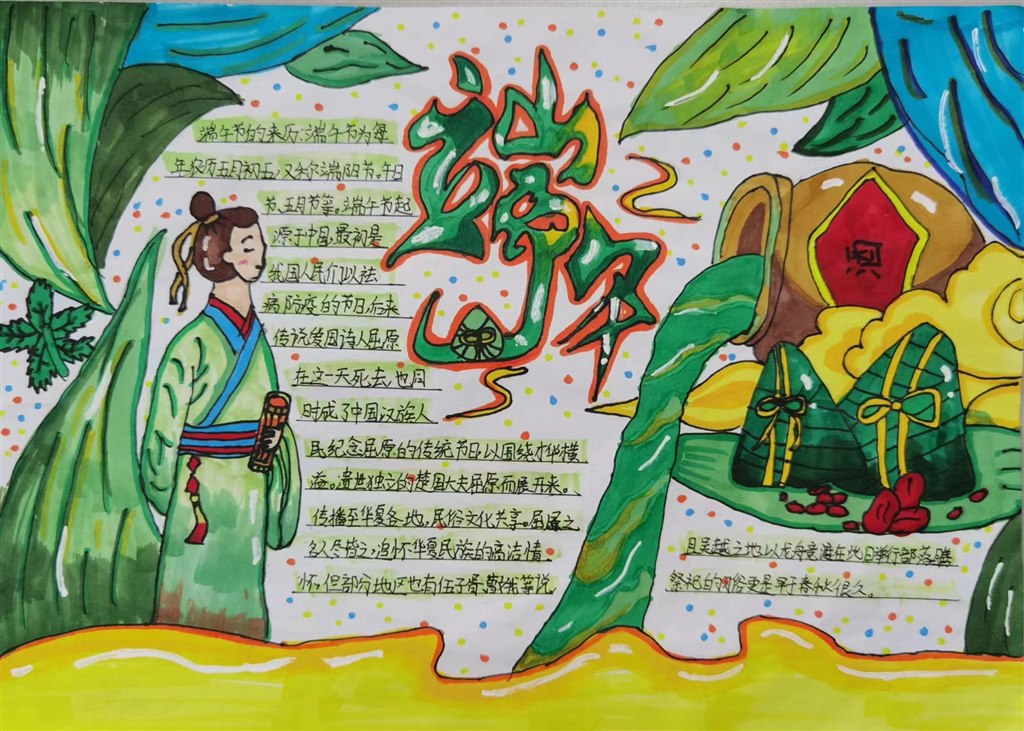 端午
端午节的来历:端午节为每
年农历五月初五,又称端阳节,午日
节、五月节等。端午节起
源于中国,最初是
我国人民们以祛
病防疫的节日,后来
传说爱国诗人屈原
在这一天死去,也同
时成了中国汉族人
民纪念屈原的传统节日以围绕才华横
溢。遗世独立的楚国大夫屈原而展开来。、
传播至华夏各地,民俗文化共享。屈原之
名人尽皆之,追怀华夏民族的高洁情
怀,但部分地区也有伍子胥、曹娥等说
酒
且吴越之地以龙舟竞渡在此日举行部落
祭祀的习俗更是早于春秋很久。